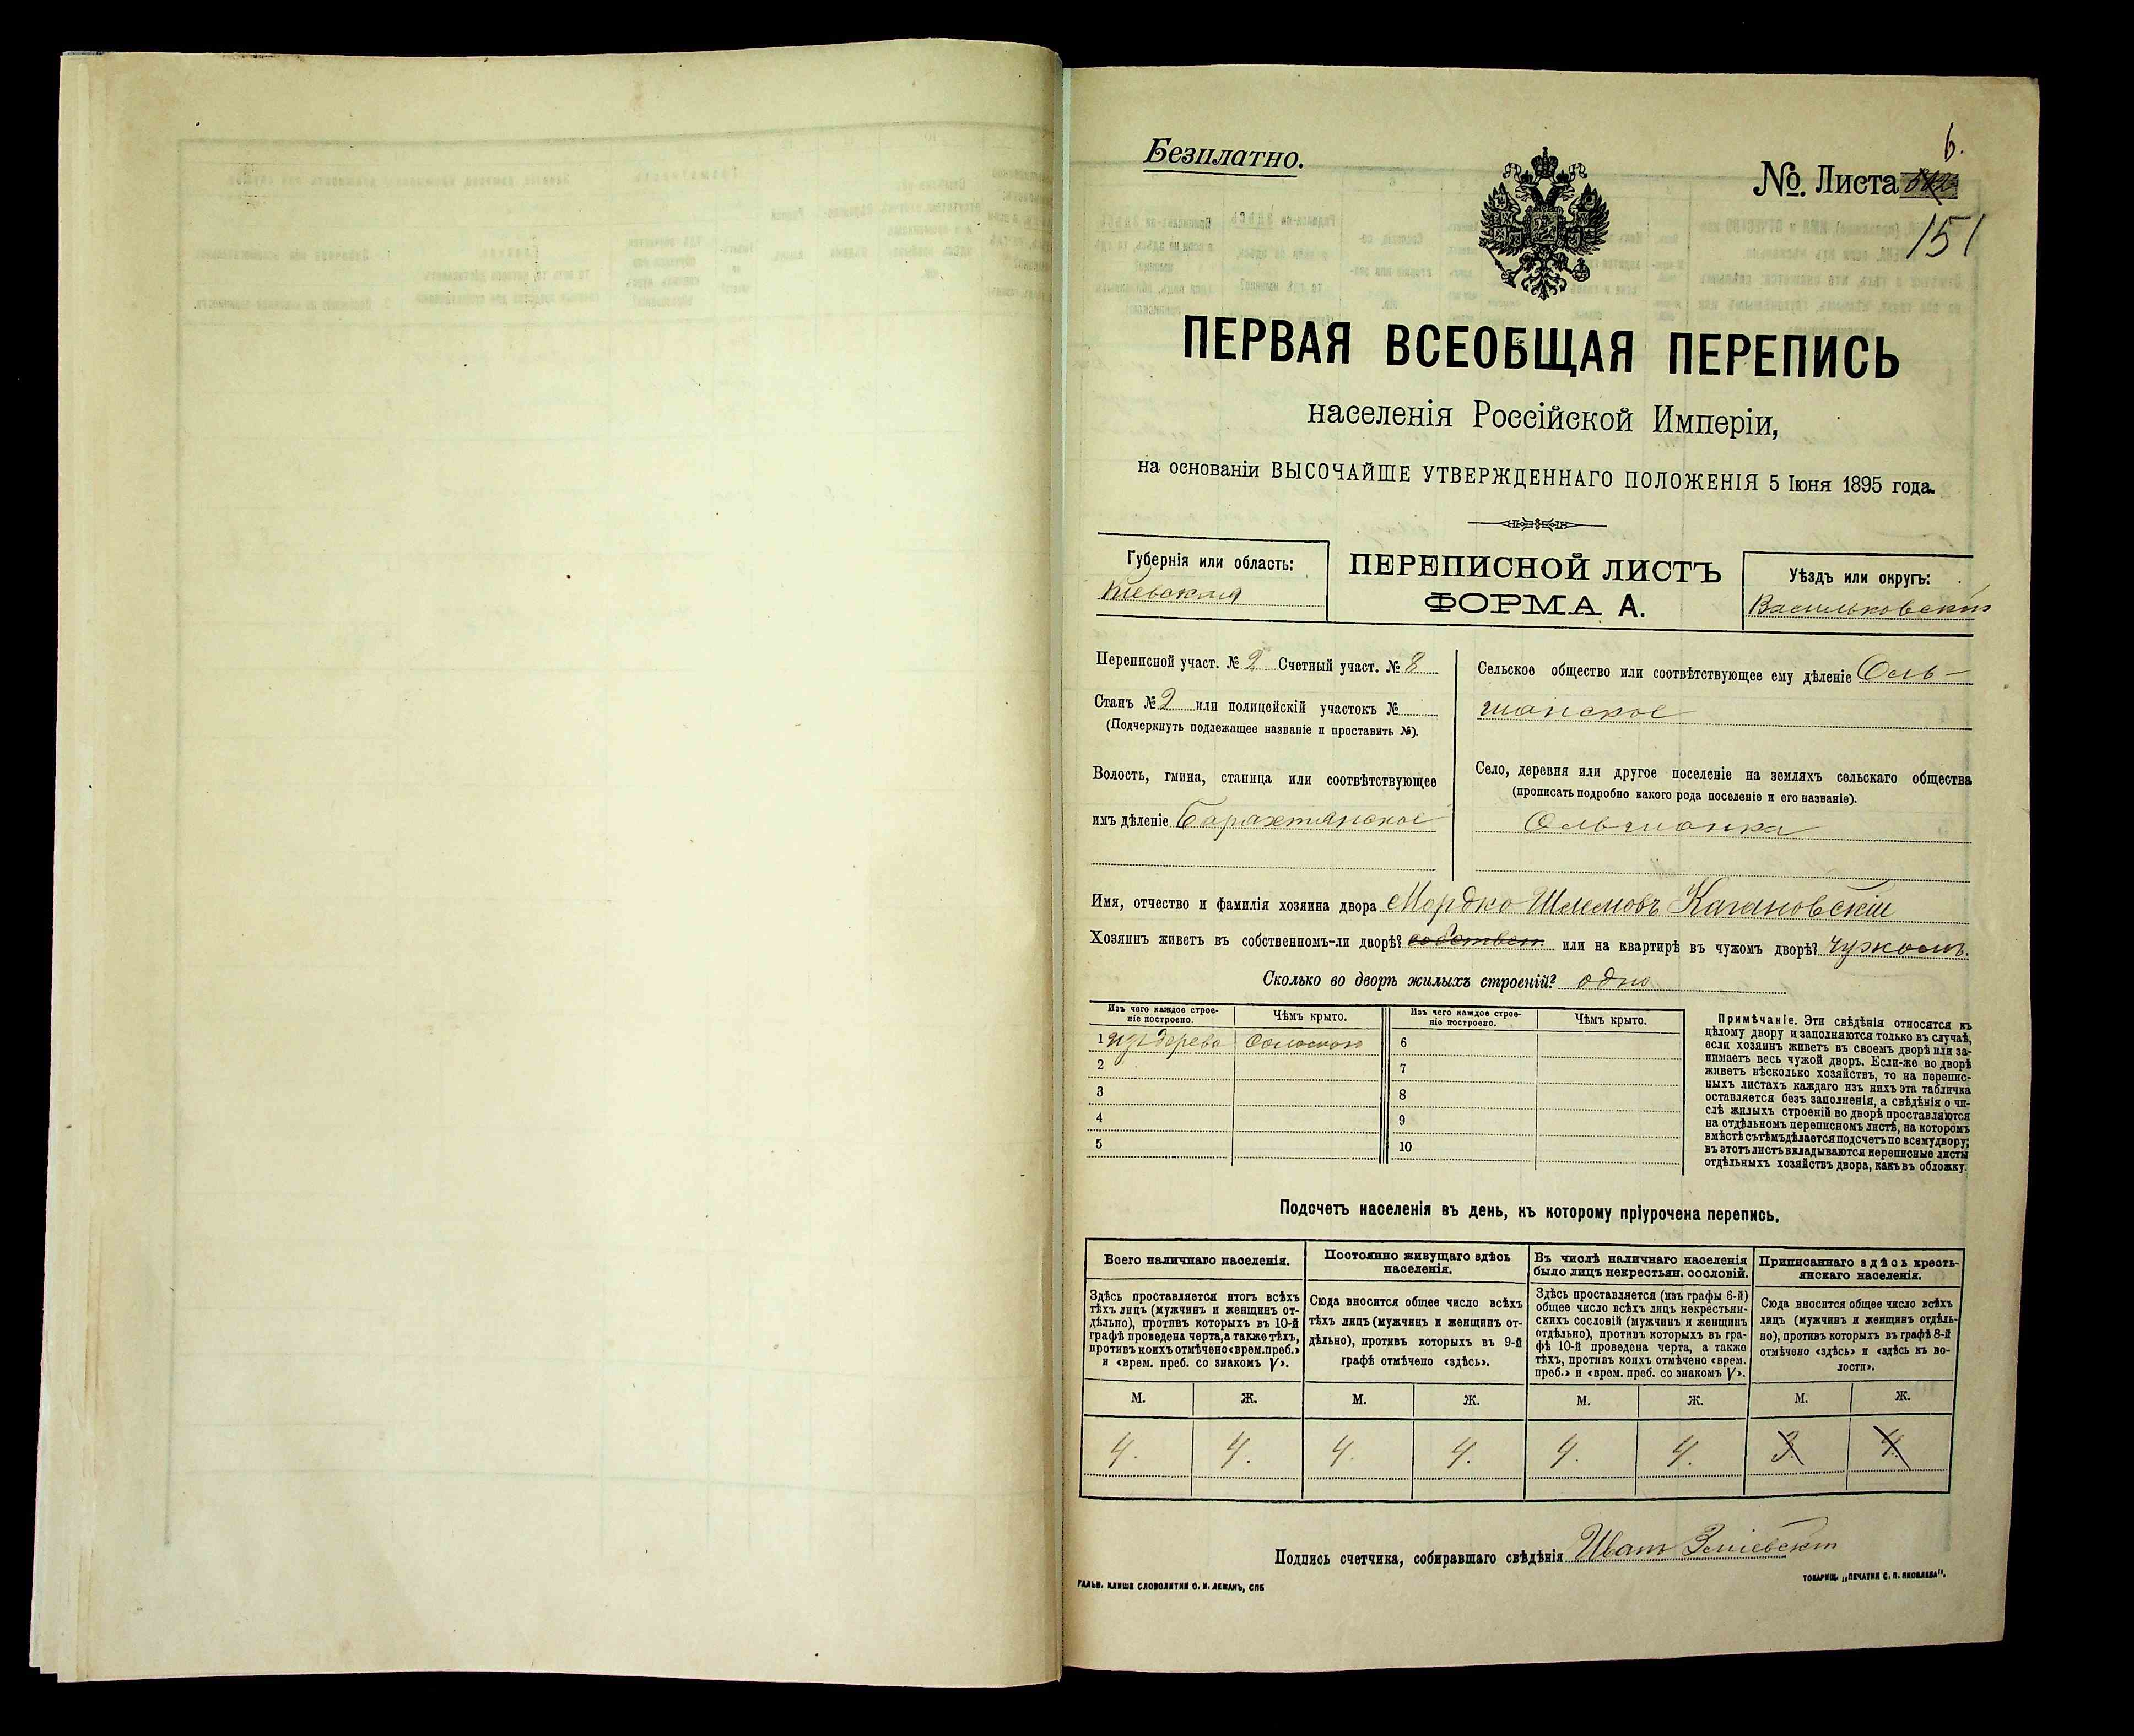 Безплатно.
6.
№. Листа
151
ПЕРВАЯ ВСЕОБЩАЯ ПЕРЕПИСЬ
населенія Россійской Имперіи,
на основаніи ВЫСОЧАЙШЕ УТВЕРЖДЕННАГО ПОЛОЖЕНІЯ 5 Іюня 1895 года.
Губернія или область:
Кіевская
ПЕРЕПИСНОЙ ЛИСТЪ
ФОРМА А.
Уѣздъ или округъ:
Васильковскій
Переписной участ. № 2 Счетный участ. № 8
Станъ № 2 или полицейскій участокъ №
(Подчеркнуть подлежащее названіе и проставить №).
Волость, гмина, станица или соотвѣтствующее
имъ дѣленіе Барахтянское
Сельское общество или соотвѣтствующее ему дѣленіе Оль-
шанское
Село, деревня или другое поселеніе на земляхъ сельскаго общества
(прописать подробно какого рода поселеніе и его названіе).
Ольшанка
Имя, отчество и фамилія хозяина двора Мордко Шлемовъ Кагановскій
Хозяинъ живетъ въ собственномъ-ли дворѣ? собствен или на квартирѣ въ чужомъ дворѣ? Чужомъ.
Сколько во дворѣ жилыхъ строеній? одно
Изъ чего каждое строе-
ніе построено.
Чѣмъ крыто.
Изъ чего каждое строе-
ніе построено.
Чѣмъ крыто.
1 изъ дерева Соломою
6
2
7
3
8
4
9
5
10
Примѣчаніе. Эти свѣдѣнія относятся къ
цѣлому двору и заполняются только въ случаѣ,
если хозяинъ живетъ въ своемъ дворѣ или за-
нимаетъ весь чужой дворъ. Если-же во дворѣ
живетъ нѣсколько хозяйствъ, то на перепис-
ныхъ листахъ каждаго изъ нихъ эта табличка
оставляется безъ заполненія, а свѣдѣнія о чи-
слѣ жилыхъ строеній во дворѣ проставляются
на отдѣльномъ переписномъ листѣ, на которомъ
вмѣстѣ съ тѣмъ дѣлается подсчетъ по всему двору;
въ этотъ листъ вкладываются переписные листы
отдѣльныхъ хозяйствъ двора, какъ въ обложку.
Подсчетъ населенія въ день, къ которому пріурочена перепись.
Всего наличнаго населенія.
Здѣсь проставляется итогъ всѣхъ
тѣхъ лицъ (мужчинъ и женщинъ от-
дѣльно), противъ которыхъ въ 10-й
графѣ проведена черта, а также тѣхъ,
противъ коихъ отмѣчено «врем. преб.»
и «врем. преб. со знакомъ V».
Постоянно живущаго здѣсь
населенія.
Сюда вносится общее число всѣхъ
тѣхъ лицъ (мужчинъ и женщинъ от-
дѣльно), противъ которыхъ въ 9-й
графѣ отмѣчено «здѣсь».
Въ числѣ наличнаго населенія
было лицъ некрестьян. сословій.
Здѣсь проставляется (изъ графы 6-й)
общее число всѣхъ лицъ некрестьян-
скихъ сословій (мужчинъ и женщинъ
отдѣльно), противъ которыхъ въ гра-
фѣ 10-й проведена черта, а также
тѣхъ, противъ коихъ отмѣчено «врем.
преб.» и «врем. преб. со знакомъ V».
Приписаннаго здѣсь кресть-
янскаго населенія.
Сюда вносится общее число всѣхъ
лицъ (мужчинъ и женщинъ отдѣль-
но), противъ которыхъ въ графѣ 8-й
отмѣчено «здѣсь» и «здѣсь къ во-
лости».
М. Ж. М. Ж. М. Ж. М. Ж.
4. 4. 4 4. 4. 4. 3. 4.
Подпись счетчика, собиравшаго свѣдѣнія Иванъ
ГАЛЬВ. КЛИШЕ СЛОВОЛИТНИ О. И. ЛЕМАНЪ, СПБ
ТОВАРИЩ. „ПЕЧАТНЯ С. П. ЯКОВЛЕВА“.